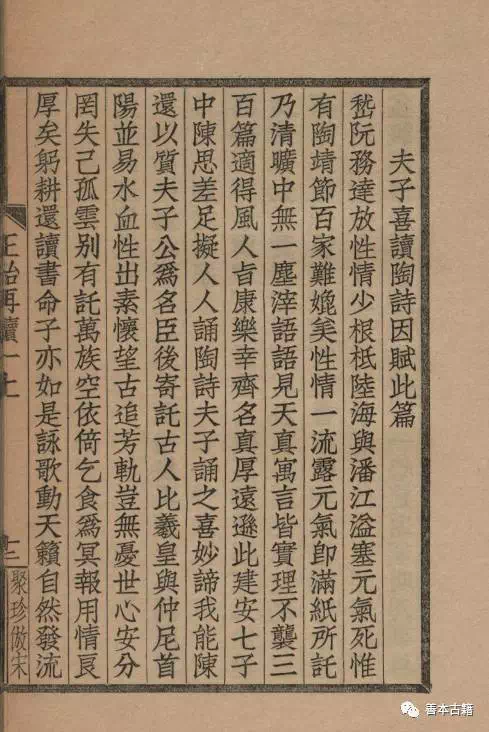 夫子喜讀陶詩因賦此篇
嵇阮務達放性情少根柢陸海與潘江溢塞元氣死惟
有陶靖節百家難媲美性情一流露元氣卽滿紙所託
乃清曠中無一塵滓語語見天真寓言皆實理不襲三
百篇適得風人旨康樂幸齊名真厚遠遜此建安七子
中陳思差足擬人人誦陶詩夫子誦之喜妙諦我能陳
還以質夫子公爲名臣後寄託古人比羲皇與仲尼首
陽並易水血性出素懷望古追芳軌豈無憂世心安分
罔失己孤雲別有託萬族空依倚乞食爲冥報用情良
厚矣躬耕還讀書命子亦如是詠歌動天籟自然發流
正始再續一上
三
聚珍倣宋
善本古籍